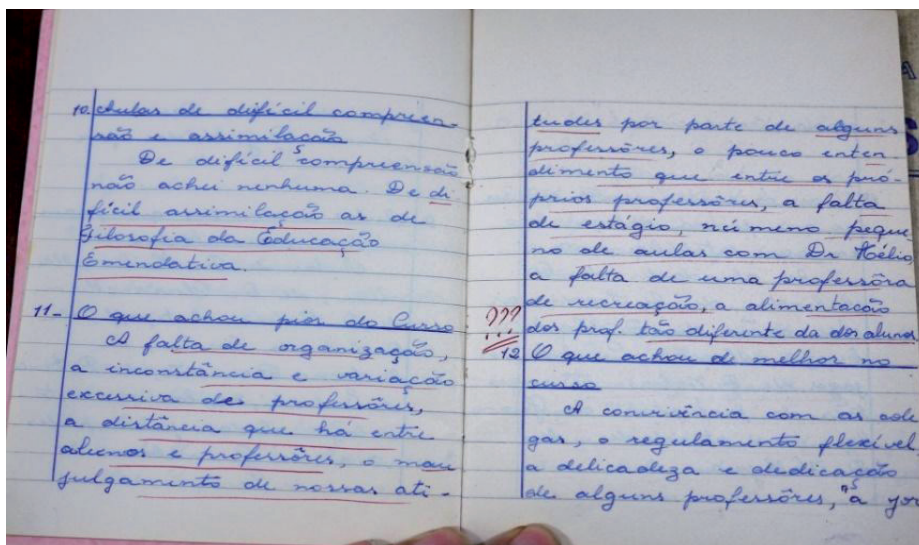 10. Aulas de difícil compreen-
são e assimilação
De difícil compreensão
não achei nenhuma. De di
fícil assimilação as de
Filosofia da Educação
Emendativa.
11- O que achou pior do Curso
A falta de organização,
a inconstância e variação
excessiva de professôres,
a distância que há entre
alunos e professôres, o mau
julgamento de nossas ati-
tudes por parte de alguns
professôres, o pouco enten-
dimento que entre os pró-
prios professôres, a falta
de estágio, número peque
no de aulas com Dr Hélio
a falta de uma professôra
de recreação, a alimentação
??? dos prof. tão diferente da dos alunos
12 O que achou de melhor no
curso
A convivência com as cole
gas, o regulamento flexível
a delicadeza e dedicação
de alguns professôres, "a